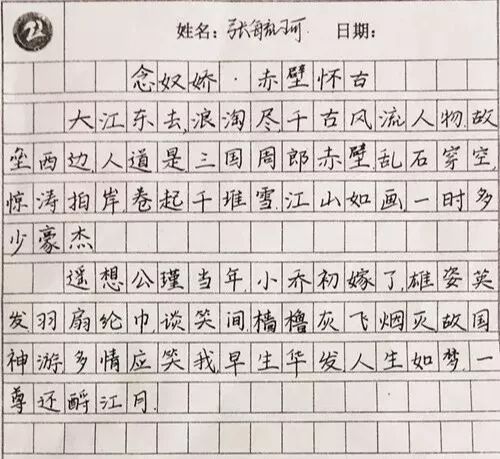 姓名：张毓珂 日期：
念奴娇·赤壁怀古
大江东去，浪淘尽，千古风流人物，故
垒西边，人道是，三国周郎赤壁，乱石穿空，
惊涛拍岸，卷起千堆雪，江山如画，一时多
少豪杰
遥想公瑾当年，小乔初嫁了，雄姿英
发，羽扇纶巾，谈笑间，樯橹灰飞烟灭，故国
神游，多情应笑我，早生华发，人生如梦，一
尊还酹江月。